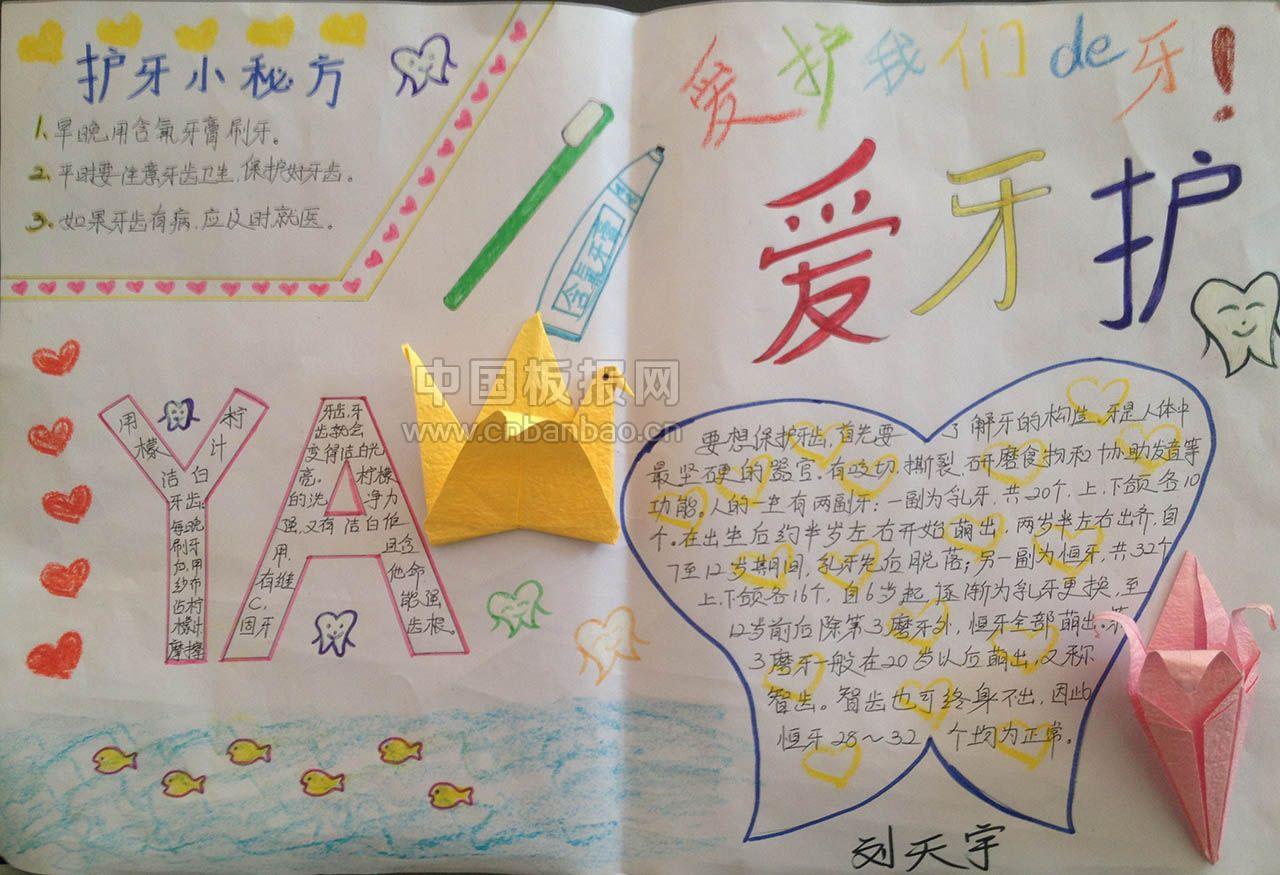 护牙小秘方
1.早晚用含氟牙膏刷牙。
2.平时要注意牙齿卫生,保护好牙齿。
3.如果牙齿有病,应及时就医。
含氟牙膏
爱护我们de牙!
爱牙护
中国板报网
www.cnbanbao.cn
用柠
檬汁
洁白
牙齿:
每晚
刷牙
后,用
纱布
沾柠
檬汁
摩擦
牙齿,牙
齿就会
变得洁白光
亮。柠檬
的洗净力
强,又有洁白作
用,且含
有维他命
C,能强
固牙齿根。
要想保护牙齿,首先要了解牙的构造,牙是人体中
最坚硬的器官。有咬切、撕裂、研磨食物和协助发音等
功能。人的一生有两副牙:一副为乳牙,共20个,上、下颌各10
个。在出生后约半岁左右开始萌出,两岁半左右出齐,自
7至12岁期间,乳牙先后脱落;另一副为恒牙,共32个
上、下颌各16个,自6岁起,逐渐为乳牙更换,至
12岁前后除第3磨牙外,恒牙全部萌出。第
3磨牙一般在20岁以后萌出,又称
智齿。智齿也可终身不出,因此
恒牙28~32个均为正常。
刘天宇